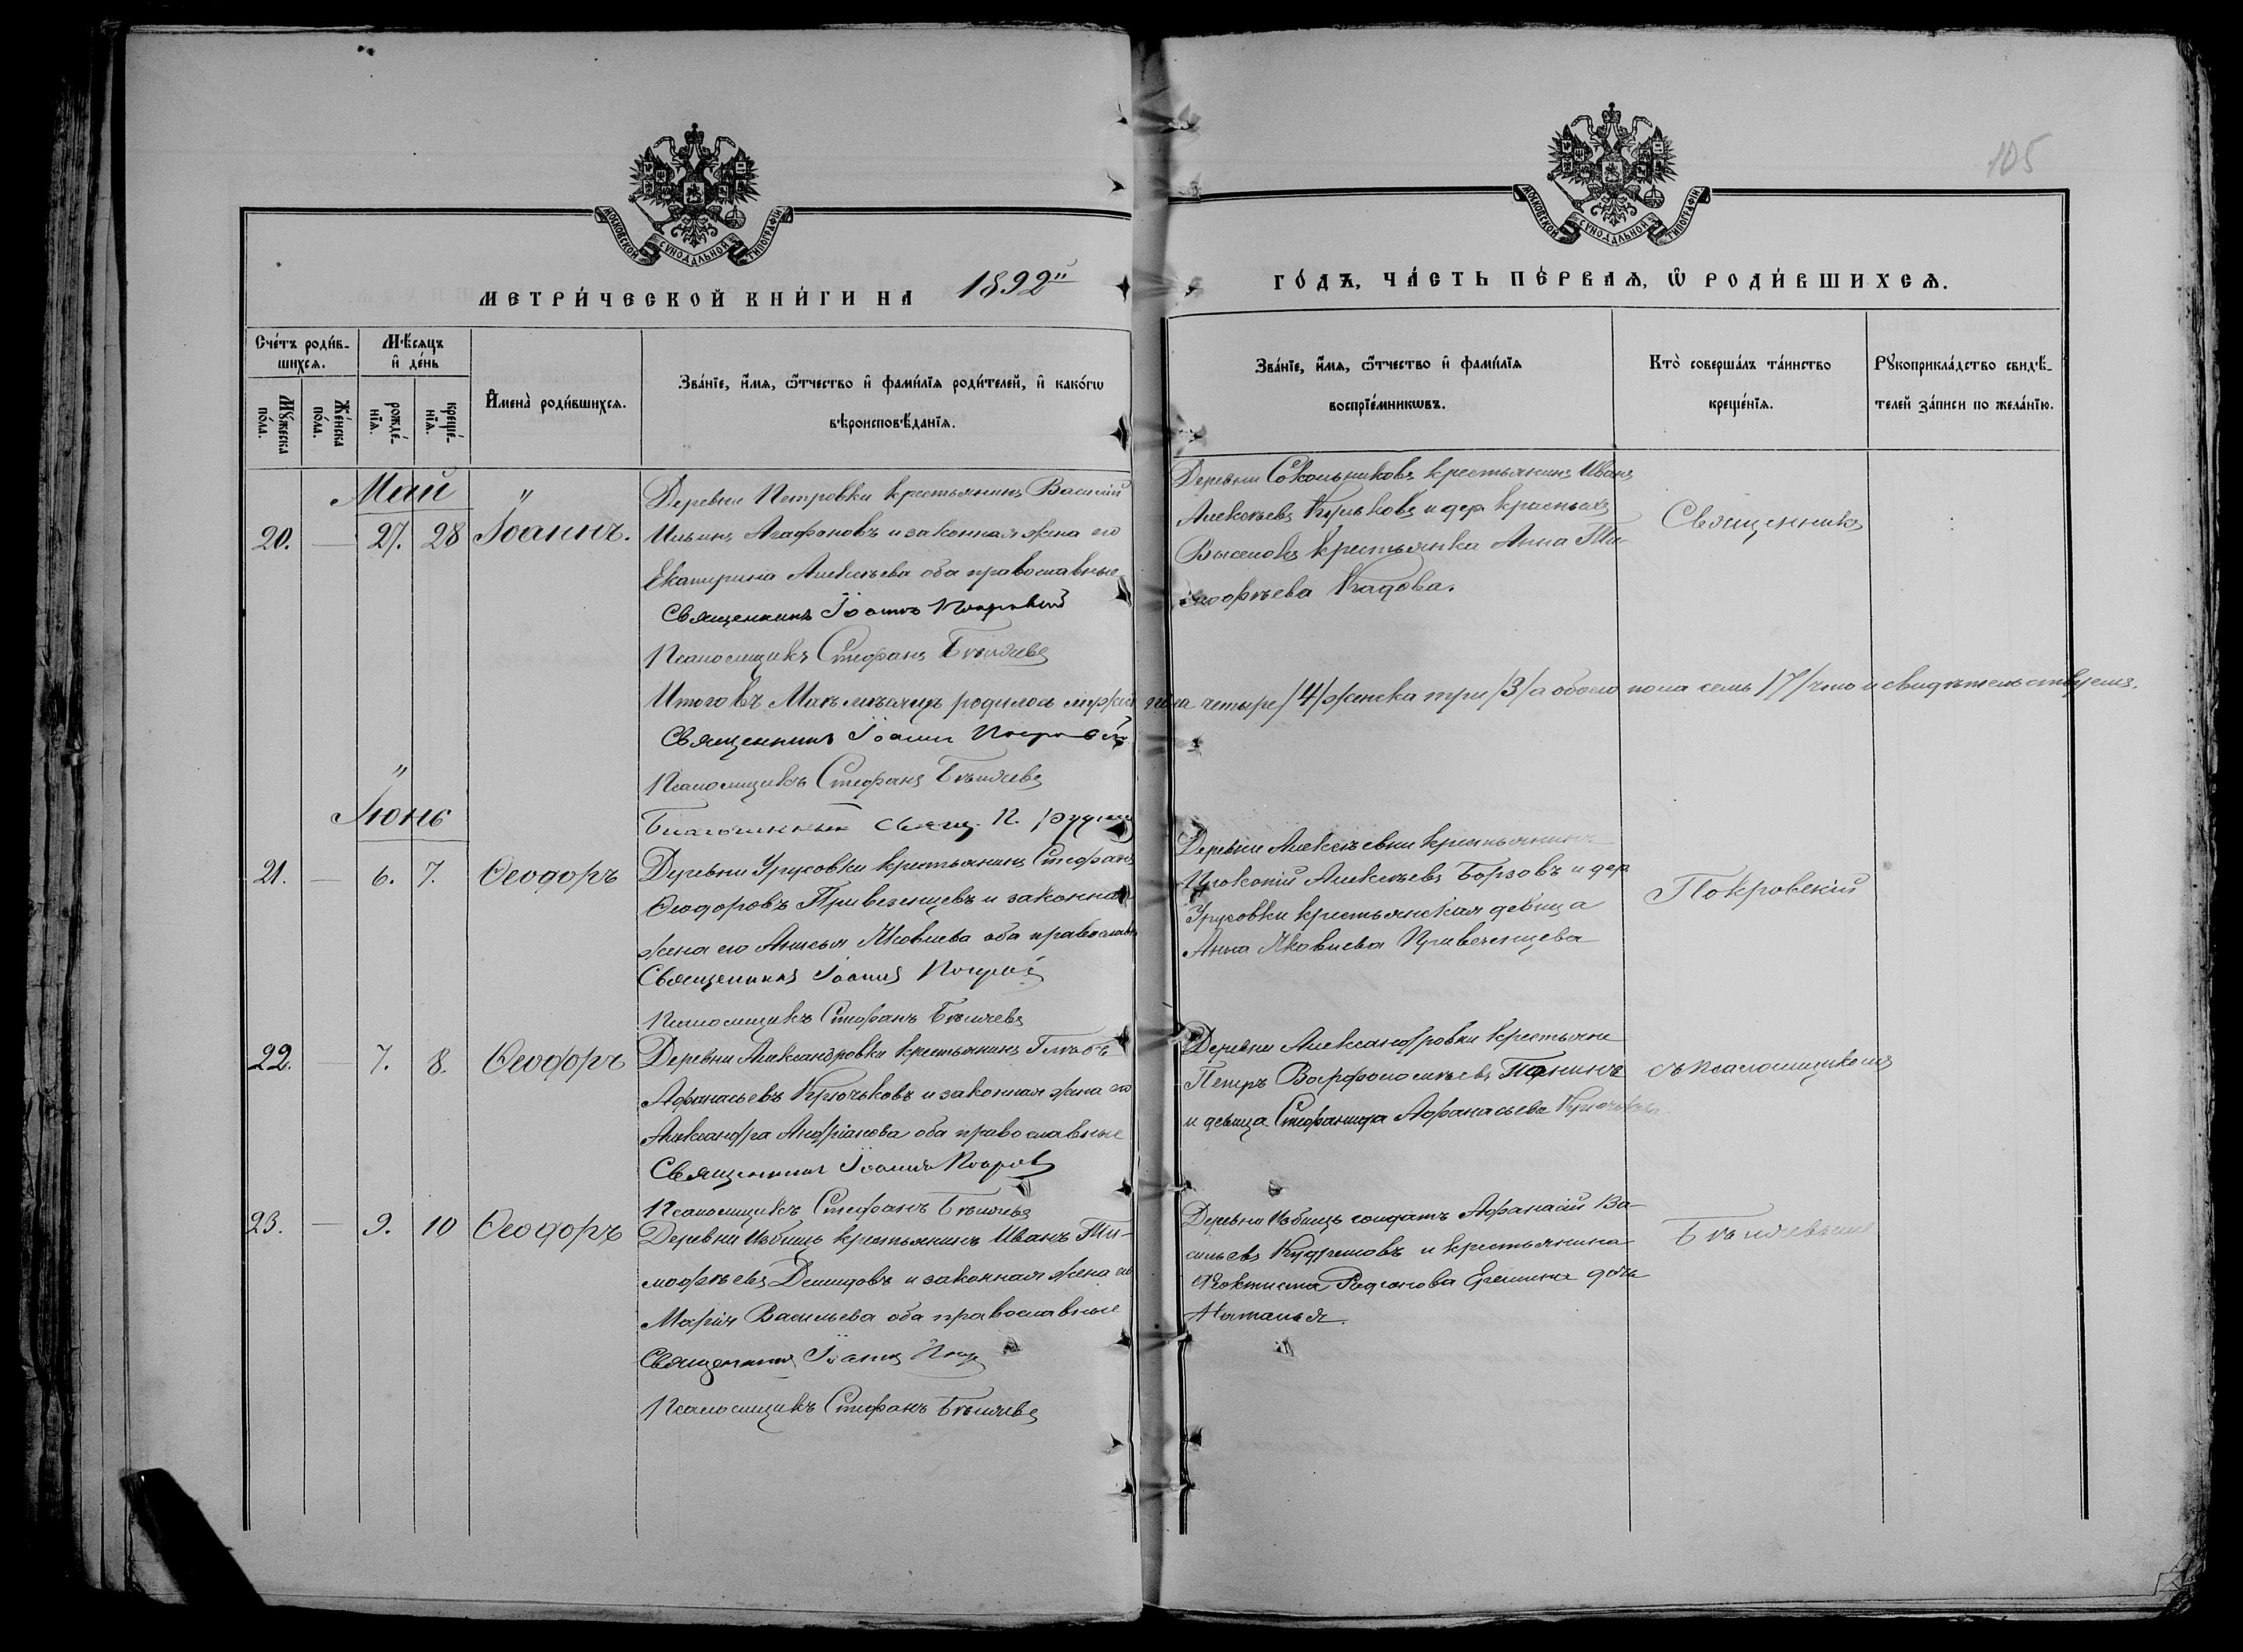 105
МОСКОВСКОЙ СѴНОДАЛЬНОЙ ТИПОГРАФІИ
МОСКОВСКОЙ СѴНОДАЛЬНОЙ ТИПОГРАФІИ
МЕТРИ́ЧЕСКОЙ КНИ́ГИ НА 1892й
ГО́ДЪ, ЧА́СТЬ ПЕ́РВАѦ, Ѡ҆ РОДИ́ВШИХСѦ.
Сче́тъ роди́в-
шихсѧ.
Мꙋ́жеска по́ла.
Же́нска по́ла.
Мѣ́сѧцъ
и҆ де́нь
рожде́-
нїѧ.
креще́-
нїѧ.
И҆мена̀ роди́вшихсѧ.
Зва́нїе, и҆́мѧ, ѻ҆́тчество и҆ фами́лїѧ роди́телей, и҆ како́гѡ
вѣроисповѣ́данїѧ.
Зва́нїе, и҆́мѧ, ѻ҆́тчество и҆ фами́лїѧ
воспрїе́мникѡвъ.
Кто̀ соверша́лъ та́инство
креще́нїѧ.
Рꙋкоприкла́дство свидѣ́-
телей за́писи по жела́нїю.
Май
20. — 27. 28 Іоаннъ.
Деревни Петровки крестьянинъ Василій
Ильинъ Агафоновъ и законная жена его
Екатерина Алексѣева оба православные
Священникъ Іоаннъ Покровскій
Псаломщикъ Стефанъ Бѣляевъ
Деревни Сокольниковъ крестьянинъ Иванъ
Алексѣевъ и дер. Красныхъ
Выселокъ крестьянка Анна Ти-
мофѣева Кадова.
Священникъ
Итого въ Маѣ мѣсяцѣ родилось мужска пола четыре /4/ женска три /3/ а обоего пола семь /7/ что и свидѣтельствуемъ.
Священникъ Іоаннъ Покровскій
Псаломщикъ Стефанъ Бѣляевъ
Благочинный свящ. П.
Іюнь
21. — 6. 7. Ѳеодоръ
Деревни Урусовки крестьянинъ Стефанъ
Ѳеодоровъ Привезенцевъ и законная
жена его Анисья Яковлева оба православн
Священникъ Іоаннъ Покров
Псаломщикъ Стефанъ Бѣляевъ
Деревни Алексѣевки крестьянинъ
Прокопій Алексѣевъ Борзовъ и дер.
Урусовки крестьянская девица
Анна Яковлева Привезенцева
Покровскій
22. — 7. 8. Ѳеодоръ
Деревни Александровки крестьянинъ Глѣбъ
Афанасьевъ Крючьковъ и законная жена его
Александра Андріанова оба православные
Священникъ Іоаннъ Покров
Псаломщикъ Стефанъ Бѣляевъ
Деревни Александровки крестьяне
Петръ Варфоломѣевъ Панинъ
и девица Стефанида Афанасьева Крючькова
съ псаломщикомъ
23. — 9. 10 Ѳеодоръ
Деревни Избищъ крестьянинъ Иванъ Ти-
мофѣевъ Демидовъ и законная жена его
Марія Васильева оба православные
Священникъ Іоаннъ Покр
Псаломщикъ Стефанъ Бѣляевъ
Деревни Избищъ солдатъ Афанасій Ва-
сильевъ Кудряшовъ и крестьянина
Ѳеоктиста Родіонова Еремина дочь
Наталья.
Бѣляевымъ